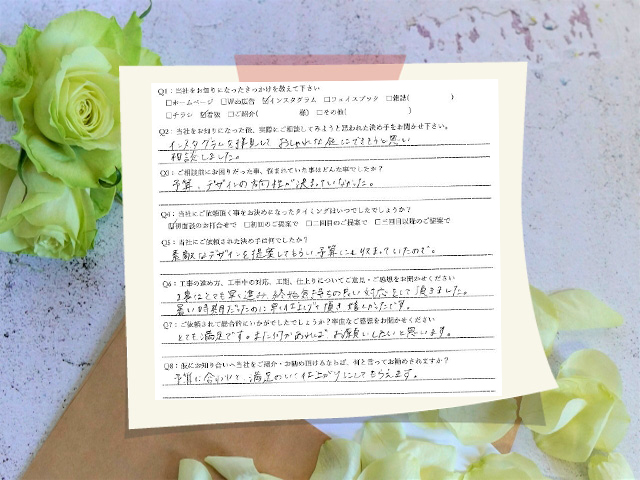 Q1：当社をお知りになったきっかけを教えて下さい
□ホームページ □Web広告 ☑インスタグラム □フェイスブック □雑誌( )
□チラシ ☑看板 □ご紹介( 様) □その他( )
Q2：当社をお知りになった後、実際にご相談してみようと思われた決め手をお聞かせ下さい。
インスタグラムを拝見して おしゃれな庭にできそうと思い
相談しました。
Q3：ご相談前にお困りだった事、悩まれていた事はどんな事でしたか？
予算、デザインの方向性が決まっていなかった。
Q4：当社にご依頼頂く事をお決めになったタイミングはいつでしたでしょうか？
☑初回のお打合せで □初回のご提案で □二回目のご提案で □三回目以降のご提案で
Q5：当社にご依頼された決め手は何でしたか？
素敵なデザインを提案してもらい予算にも収まっていたので。
Q6：工事の進め方、工事中の対応、工期、仕上りについてご意見・ご感想をお聞かせください
工事はとても早く進み、終始気持ちの良い対応をして頂きました。
暑い時期だったのに早く仕上げて頂き嬉しかったです。
Q7：ご依頼されて総合的にいかがでしたでしょうか？率直なご感想をお聞かせください
とても満足です。また何かあればお願いしたいと思います。
Q8：仮にお知り合いへ当社をご紹介・お勧め頂けるならば、何と言ってお勧めされますか？
予算に合わせて、満足のいく仕上がりにしてもらえます。